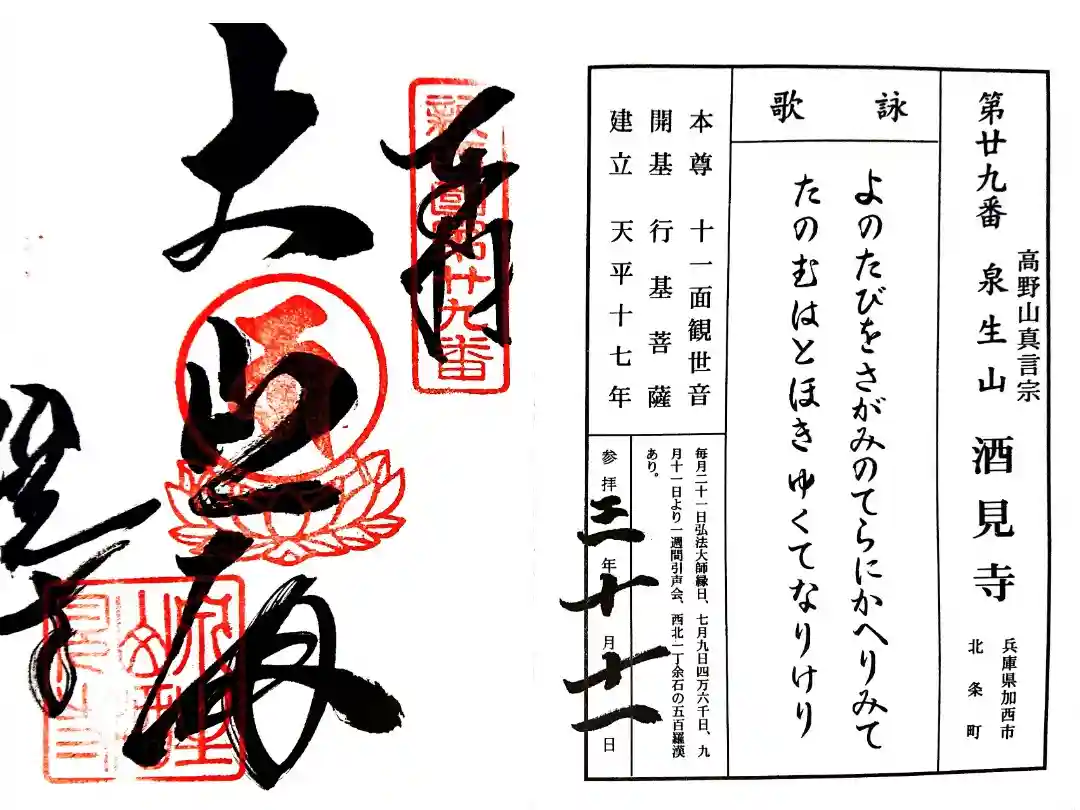 第廿九番 泉生山 酒見寺
高野山真言宗
兵庫県加西市
北条町
詠歌
よのたびをさがみのてらにかへりみて
たのむはとほきゆくてなりけり
本尊 十一面観世音
開基 行基菩薩
建立 天平十七年
毎月二十一日弘法大師縁日、七月九日四万六千日、九
月十一日より一週間引声会、西北一丁余石の五百羅漢
あり。
参拝三年十月十一日
奉拝
新西國第廿九番
大悲殿
酒見寺